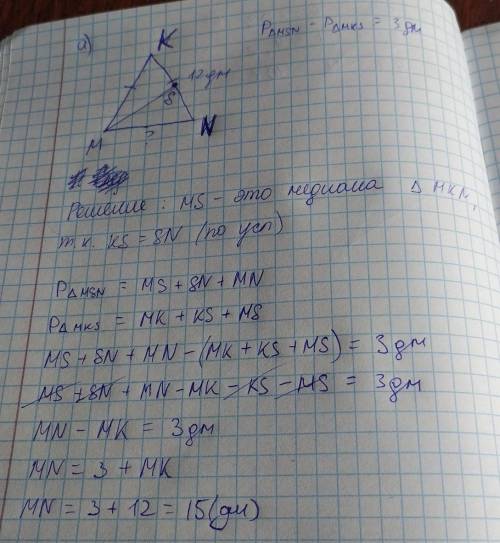 P△MSN - P△MKS = 3 дм
а)
K
12 дм
S
M
?
N
Решение: MS - это медиана △ MKN,
т.к. KS = SN (по усл)
P△MSN = MS + SN + MN
P△MKS = MK + KS + MS
MS + SN + MN - (MK + KS + MS) = 3 дм
MS + SN + MN - MK - KS - MS = 3 дм
MN - MK = 3 дм
MN = 3 + MK
MN = 3 + 12 = 15 (дм)